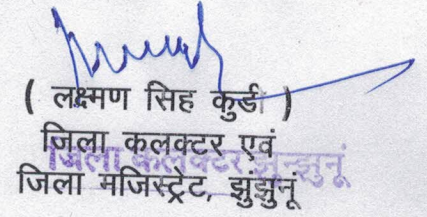 ( लक्ष्मण सिंह कुडी )
जिला कलक्टर एवं
जिला कलक्टर झुन्झुनूं
जिला मजिस्ट्रेट, झुंझुनूं